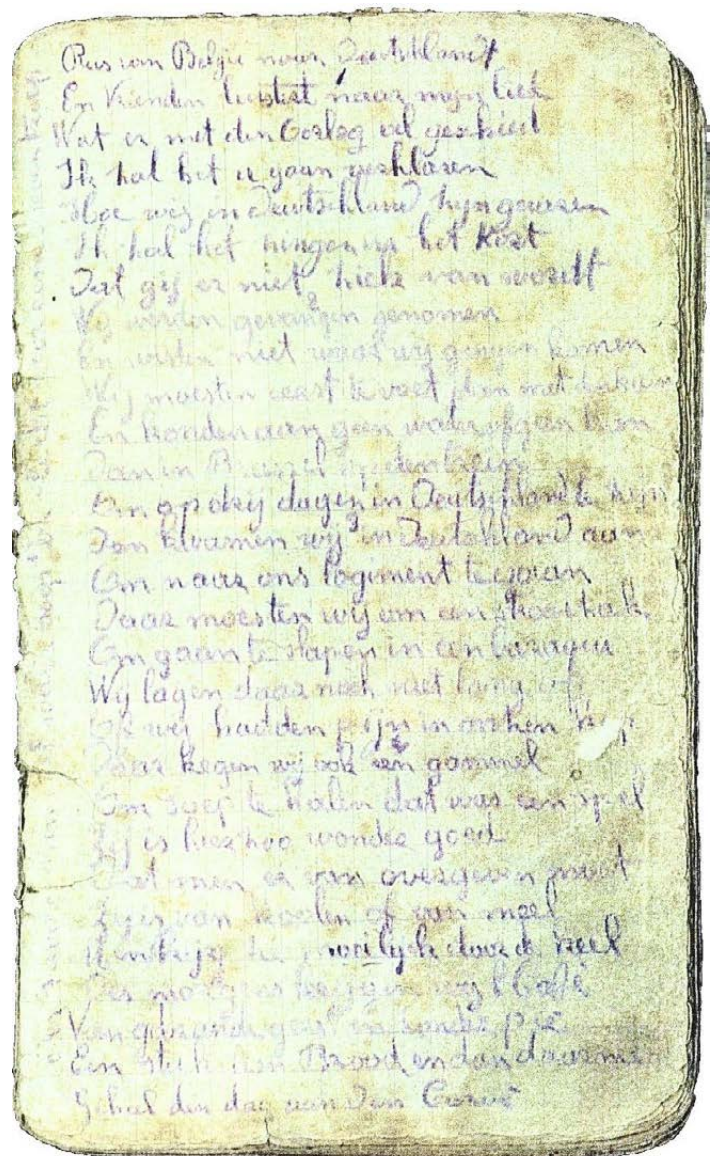 Reis van Belgie naar Deutschland
En Vrienden luistert naar mijn lied
Wat er met den Oorlog al geschied
Ik hal het u gaan
Hoe wij in Deutschland hijn geweesen
Ik hal het het kort
Dat gij er niet hiek van wordt
Wij werden gevangen genomen
En wisten niet waar wij gingen komen
Wij moesten eerst te voet
En konden aan geen water of geen
Dan in Brussel op den trein
Om op drij dagen in Deutschland te hijn
Dan kwamen wij in Deutschland aan
Om naar ons logiment te gaan
Daar moesten wij om een
Om gaan te slapen in een baraque
Wij lagen daar noch niet lang
Of wij hadden pijn in onhen kop
Daar kregen wij ook een gammel
Om soep te halen dat was een spel
Zij is hoo wonder goed
Dat men er van overgeven moet
Zij is van koolen of van meel
moeilijk door de keel
Des morgens krijgen wij Café
Van gebrande gerst en honder
Een stuk van Brood en dan daarme
Geheel den dag aan den